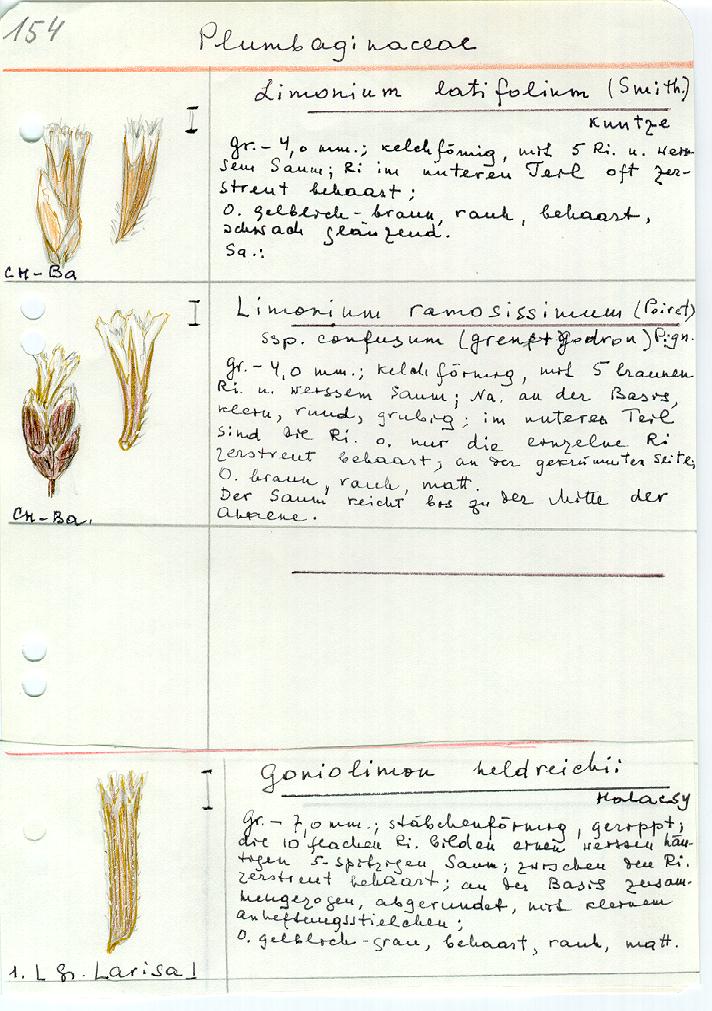 154
Plumbaginaceae
Limonium latifolium (Smith.)
Kuntze
I
gr. - 4,0 mm.; kelchförmig, mit 5 Ri. u. weis-
sem Saum; Ri im unteren Teil oft zer-
streut behaart;
O. gelblich-braun, rauh, behaart,
schwach glänzend.
Sa.:
CH-Ba
Limonium ramosissimum (Poiret)
I
ssp. confusum (Gren. et Godron) Pign.
gr. - 4,0 mm.; kelchförmig, mit 5 braunen
Ri. u. weissem Saum; Na. an der Basis,
klein, rund, grubig; im unteren Teil
sind die Ri. o. nur die einzelne Ri
zerstreut behaart; an der gekrümmten Seite;
O. braun, rauh, matt.
Der Saum reicht bis zu der Mitte der
Achaene.
CH-Ba.
Goniolimon heldreichii
Halacsy
I
Gr. - 7,0 mm.; stäbchenförmig, gerippt;
die 10 flachen Ri. bilden einen weissen häu-
tigen 5-spitzigen Saum; zwischen den Ri.
zerstreut behaart; an der Basis zusam-
mengezogen, abgerundet, mit kleinem
Anheftungsstielchen;
O. gelblich-grau, behaart, rauh, matt.
1. L Gr. Larisa